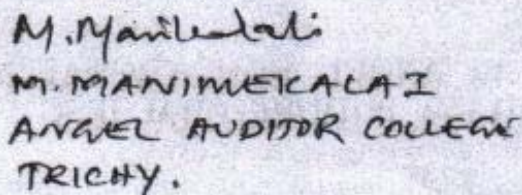 M. Manimekalai
M. MANIMEKALAI
ANGEL AUDITOR COLLEGE
TRICHY.